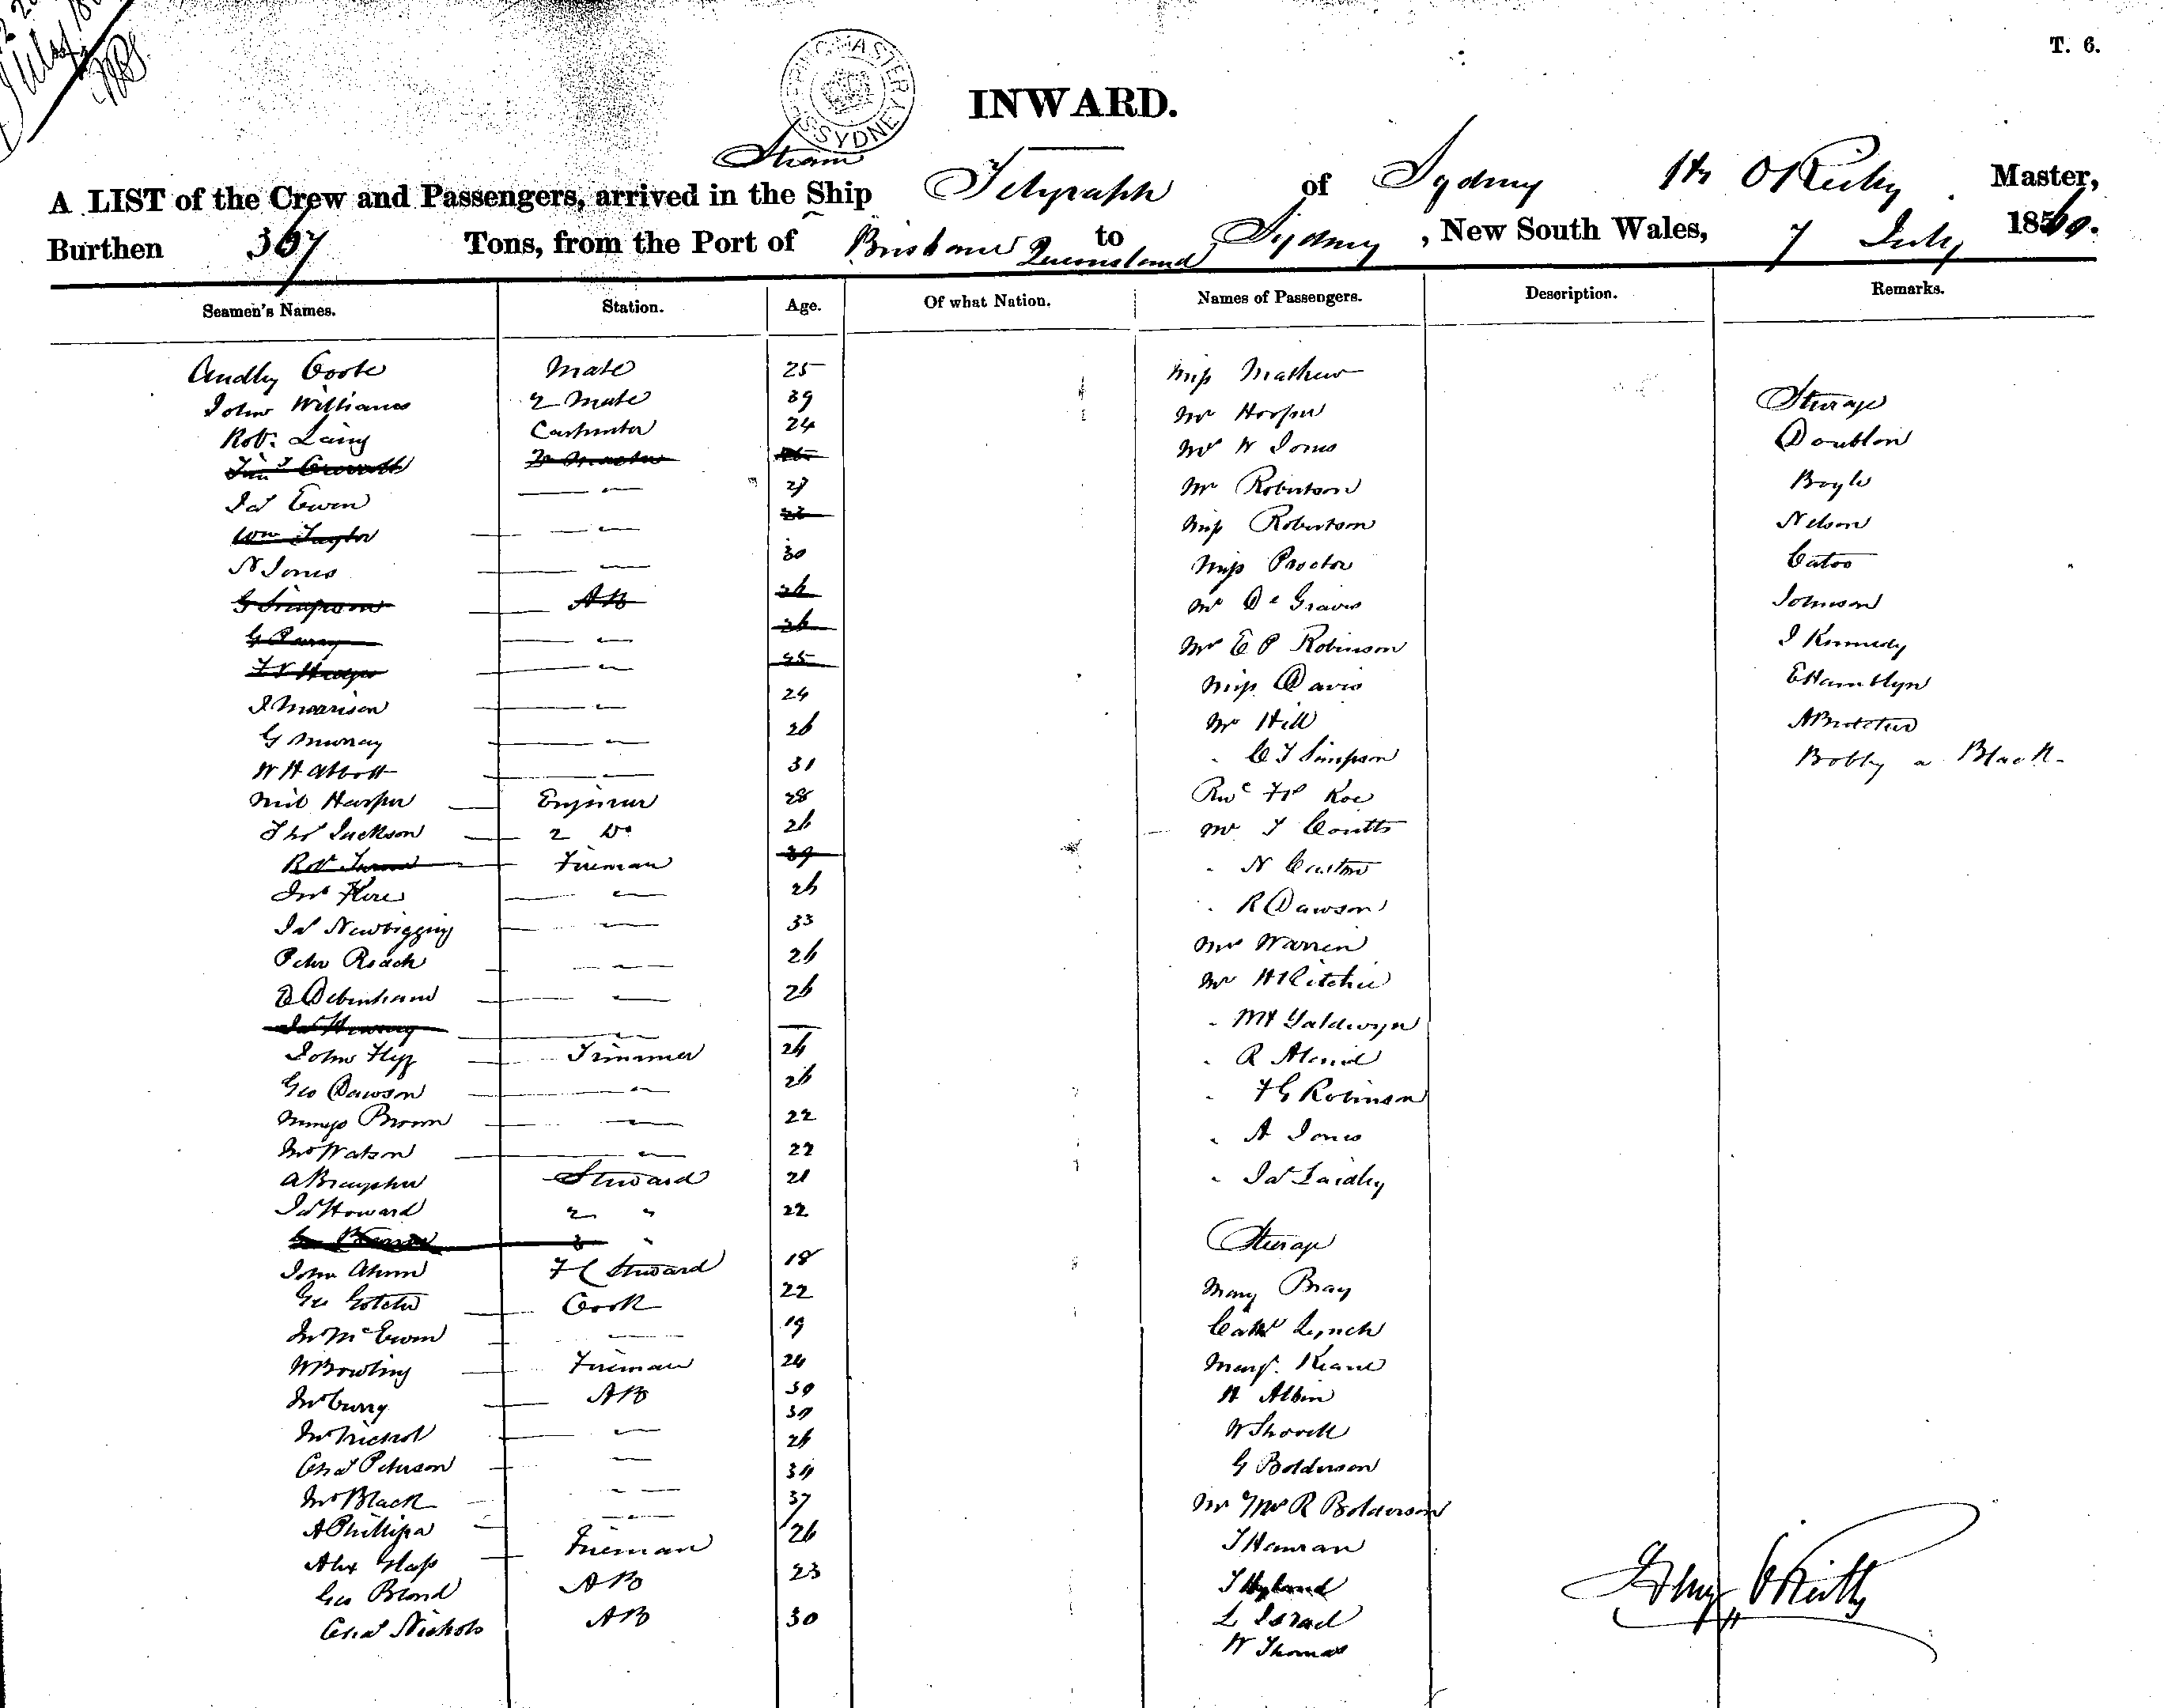 T. 6.
SHIPPING MASTER'S SYDNEY
INWARD.
Steam
A LIST of the Crew and Passengers, arrived in the Ship Telegraph of Sydney O'Reilly Master,
Burthen 367 Tons, from the Port of Brisbane Queensland to Sydney, New South Wales, 7 July 1860.
Seamen's Names. Station. Age. Of what Nation. Names of Passengers. Description. Remarks.
Audley Coote Mate 25 Miss Mathew
John Williams 2 Mate 39 Mr Hooper Steerage
Robt Laing Carpenter 24 Mr W Jones Doublon
Jas Ewen 27 Mr Robertson Boyle
Wm Taylor Miss Robertson Nelson
N Jones 30 Miss Proctor Cator
G Simpson AB Mr De Graves Johnson
Mr E P Robinson J Kennedy
Miss Davis E Hamblyn
J Morrison 24 Mr Hill A Butcher
G Murray 26 " C T Simpson Bobby a Black
W H Abbott 31
Neil Harper Engineer 28 Roe
Thos Jackson 2 Do 26 Mr J Coutts
Robt Turner Fireman 39 " N
Jno 26 " R Dawson
Jas Newbigging 33 Mrs Warren
Peter Roach 26 Mr H Ritchie
E Debenham 26 " Mt Yaldwyn
John Trimmer 26 " R
Geo Dawson 26 " F G Robinson
Mungo Brown 22 " A Jones
Jno Watson 22
A Steward 21 " Jas Laidley
Jas Howard 2 " 22
Steerage
John Ahern F C Steward 18
Geo Cook 22 Mary Bray
Jn McEwen 19 Cathe Lynch
W Bowling Fireman 24 Margt Keane
Jno Curry AB 30 H Albin
Jno Nichol 30 W Shovell
Chas Peterson 26 G Bolderson
Jno Black 34 Mr & Mrs R Bolderson
A Phillips 37 J Hanran
Alex Glass Fireman 26 J Hyland
Geo Blond AB 23 L Israel
Chas Nichols AB 30 W Thomas